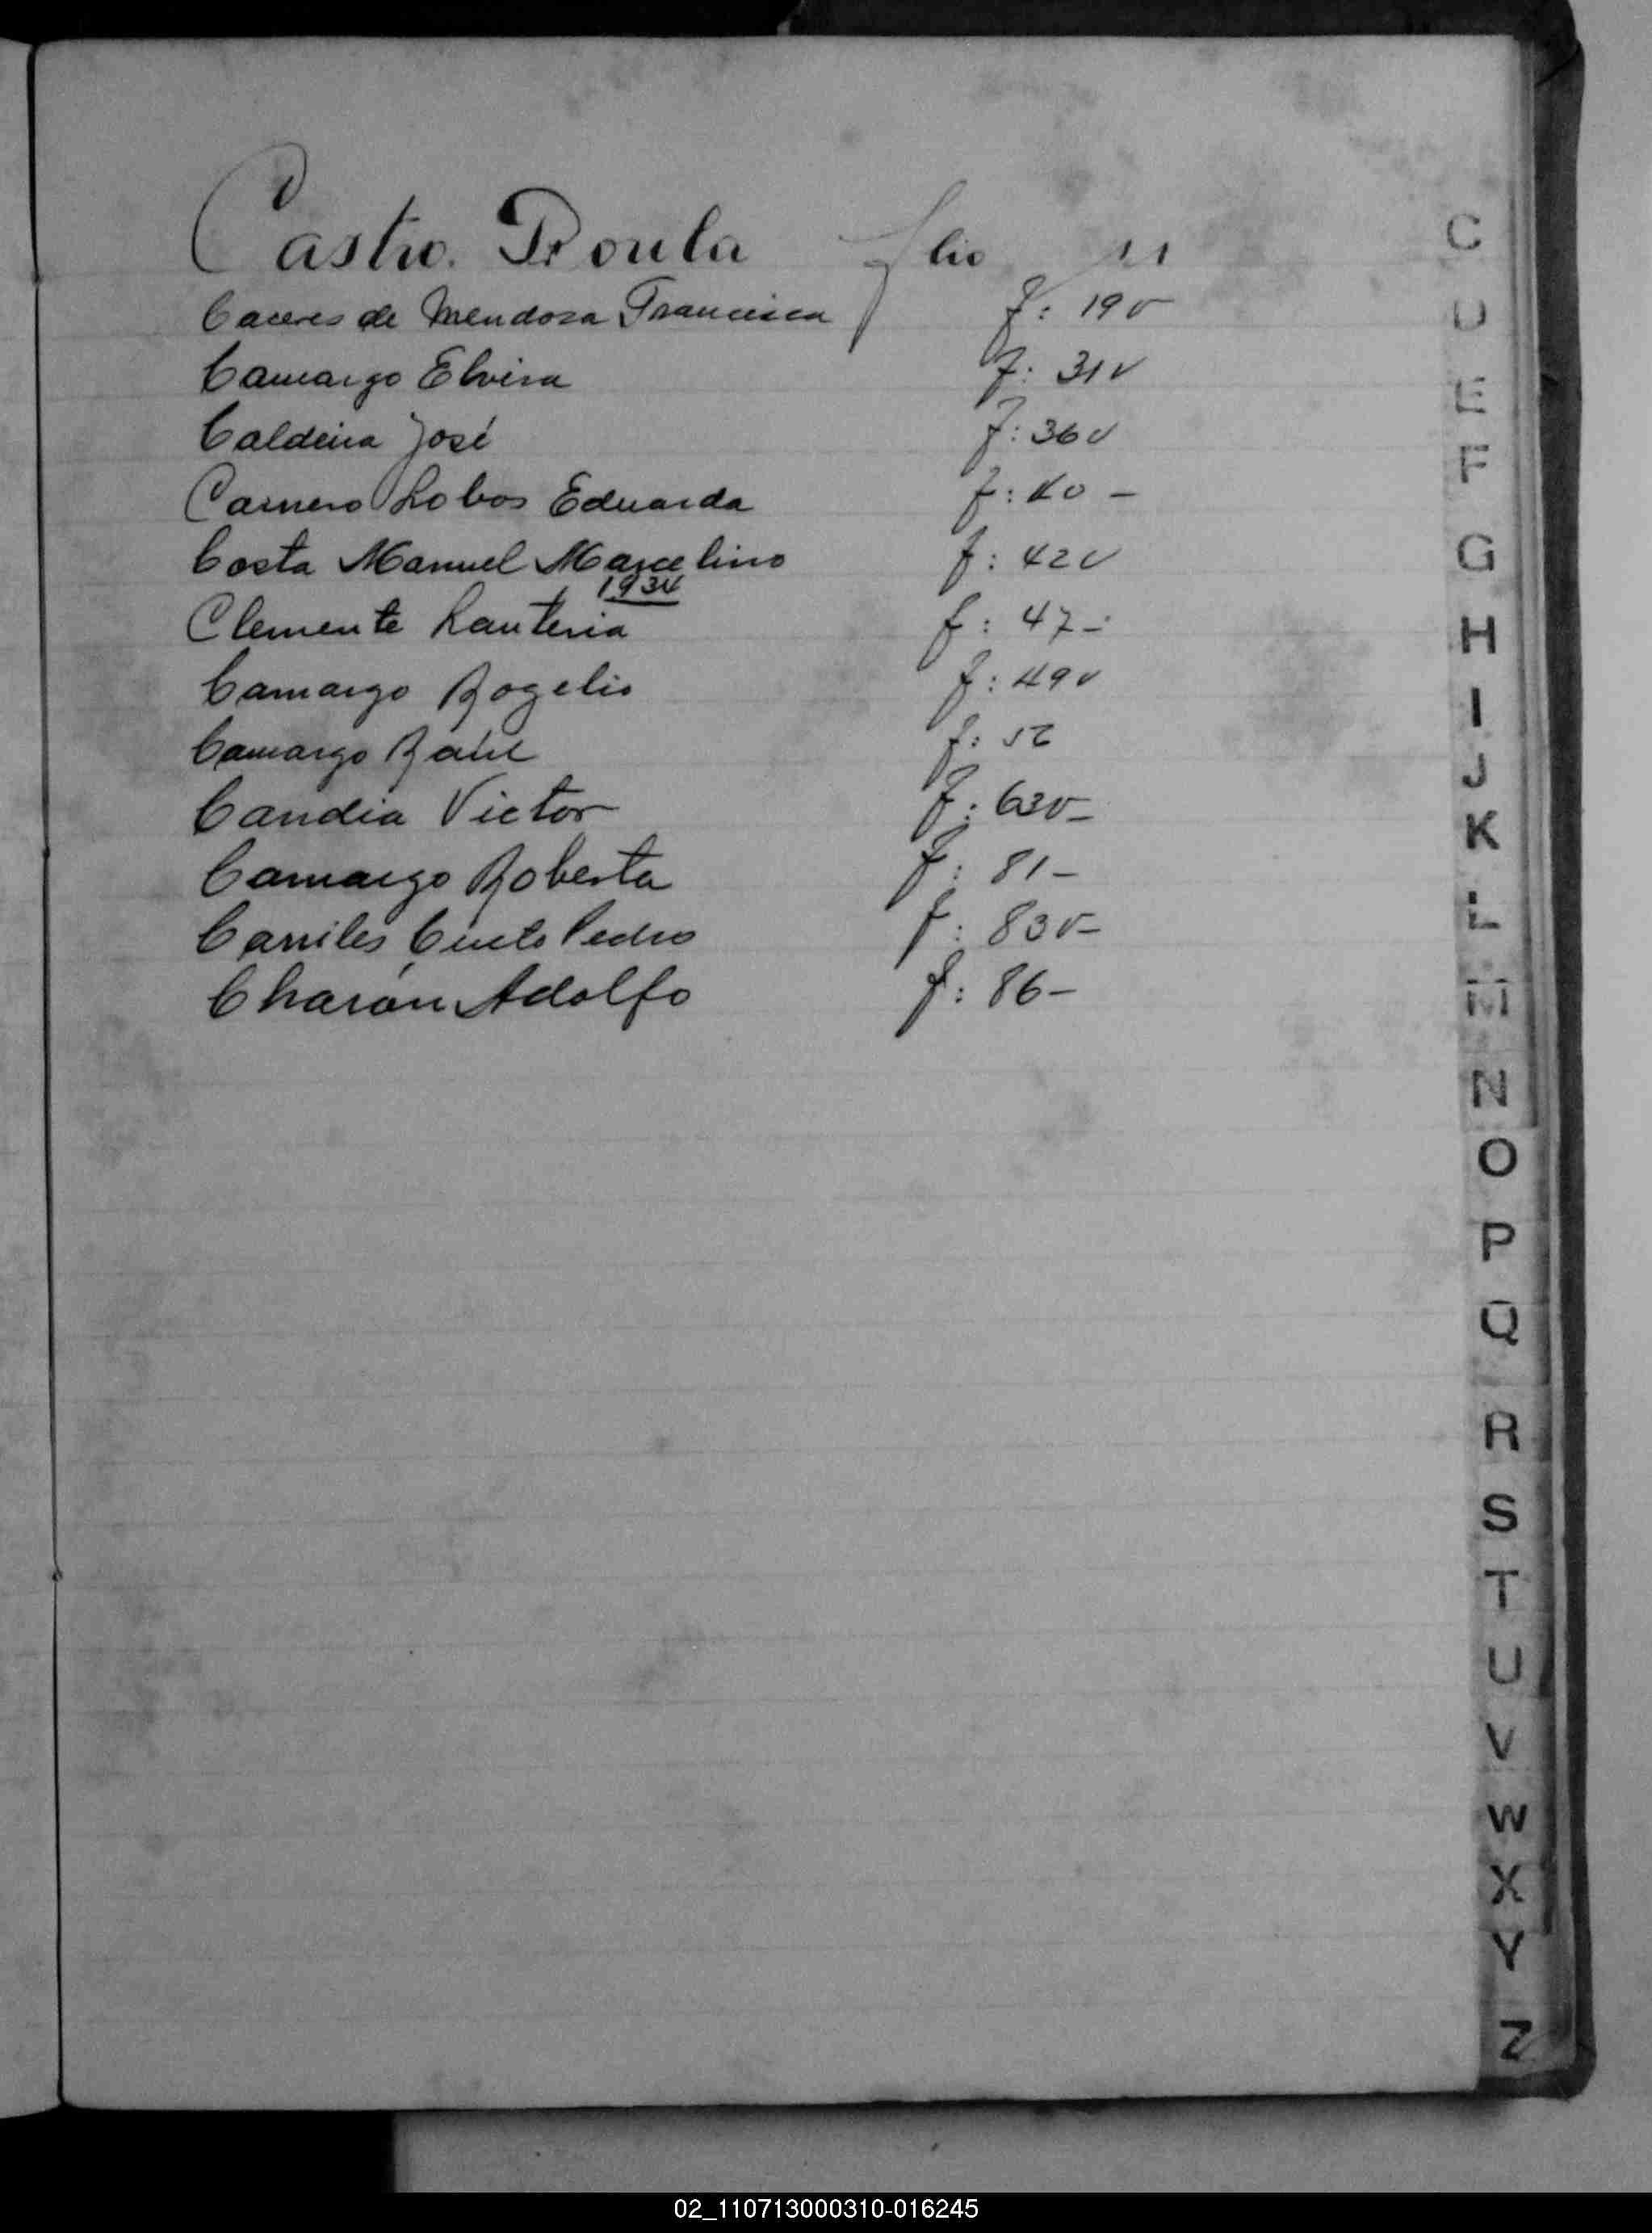 Castro. Roula folio 11
Caceres de Mendoza Francisca f: 19v
Camargo Elvira f: 31v
Caldeira José f: 36v
Carnero Lobos Eduarda f: 40 -
Costa Manuel Marcelino f: 42v
1934
Clemente Lauteria f: 47-
Camargo Rogelio f: 49v
Camargo Raúl f: 52
Candia Victor f: 63v-
Camargo Roberta f: 81-
Carriles Cueto Pedro f: 83v-
Charón Adolfo f: 86-
C
D
E
F
G
H
I
J
K
L
M
N
O
P
Q
R
S
T
U
V
W
X
Y
Z
02_110713000310-016245